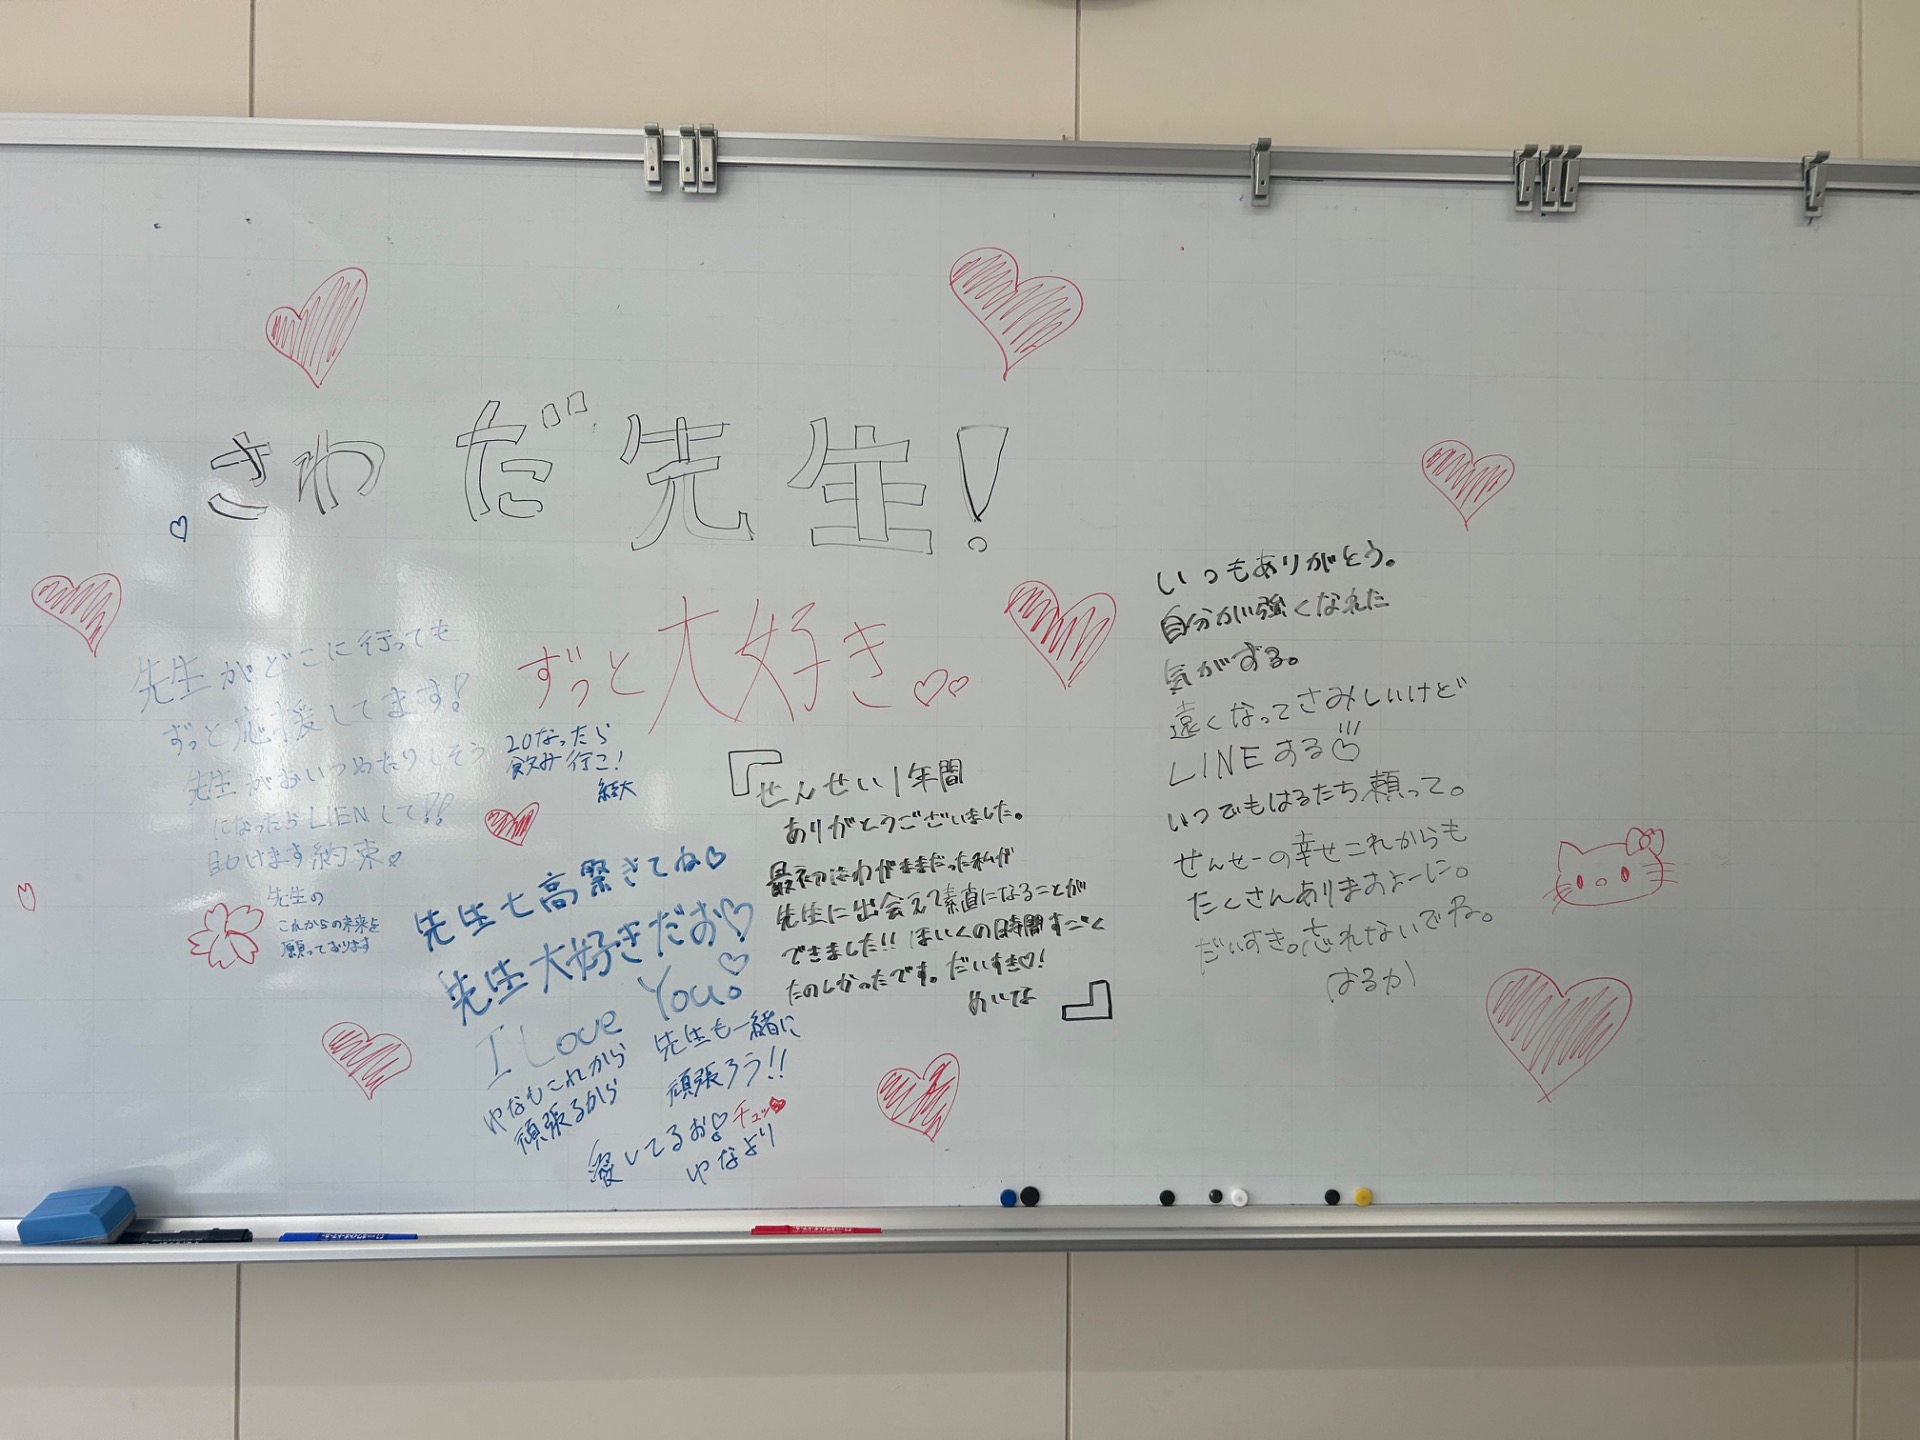 さわだ先生!
ずっと大好き
先生がどこに行っても
ずっと応援してます!
先生がおいつめたりしそう
になったらLIENして!!
助けます約束
先生の
これからの未来を
願っております
20なったら
飲み行こ!
先生七高繋きてね
先生大好きだお
I Love You。
ゆなもこれから
頑張るから
先生も一緒に
頑張ろう!!
愛してるお チュッ
ゆなより
『せんせい1年間
ありがとうございました。
最初はわがままだった私が
先生に出会えて素直になることが
できました!! ほいくの時間すごく
たのしかったです。だいすき!
めいさ』
いつもありがとう。
自分が強くなれた
気がする。
遠くなってさみしいけど
LINEする
いつでもはるたち頼って。
せんせーの幸せこれからも
たくさんありますよーに。
だいすき。忘れないでね。
はるか